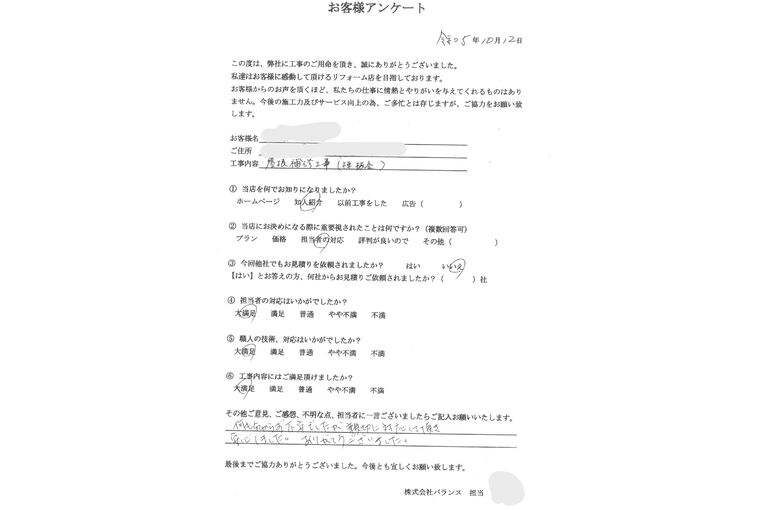 お客様アンケート
令和5年10月12日
この度は、弊社に工事のご用命を頂き、誠にありがとうございました。
私達はお客様に感動して頂けるリフォーム店を目指しております。
お客様からのお声を頂くほど、私たちの仕事に情熱とやりがいを与えてくれるものはあり
ません。今後の施工力及びサービス向上の為、ご多忙とは存じますが、ご協力をお願い致
します。
お客様名
ご住所
工事内容 屋根補修工事(棟板金)
① 当店を何でお知りになりましたか?
ホームページ 知人紹介 以前工事をした 広告( )
② 当店にお決めになる際に重要視されたことは何ですか?(複数回答可)
プラン 価格 担当者の対応 評判が良いので その他( )
③ 今回他社でもお見積りを依頼されましたか? はい いいえ
【はい】とお答えの方、何社からお見積りご依頼されましたか?( )社
④ 担当者の対応はいかがでしたか?
大満足 満足 普通 やや不満 不満
⑤ 職人の技術、対応はいかがでしたか?
大満足 満足 普通 やや不満 不満
⑥ 工事内容にはご満足頂けましたか?
大満足 満足 普通 やや不満 不満
その他ご意見、ご感想、不明な点、担当者に一言ございましたらご記入お願いいたします。
親切に対応して頂き
安心しました。ありがとうございました。
最後までご協力ありがとうございました。今後とも宜しくお願い致します。
株式会社バランス 担当